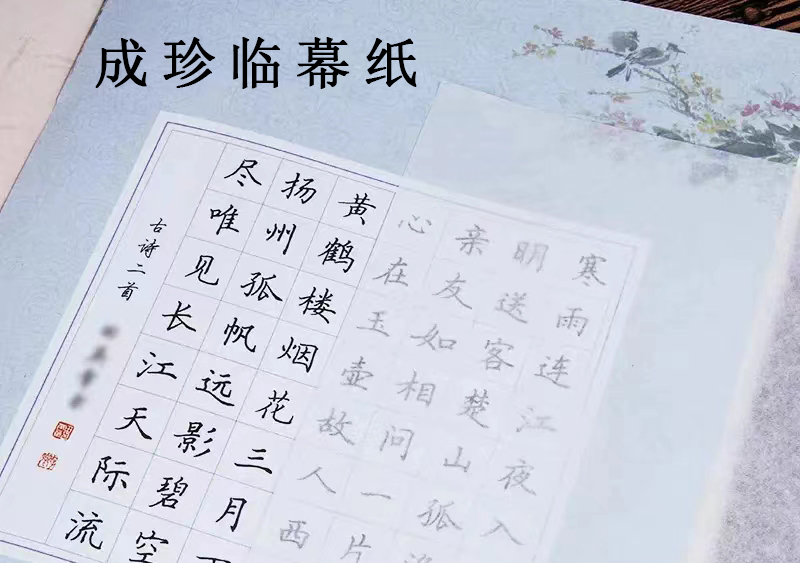 成珍临幕纸
寒雨连江夜入
明送客楚山孤
亲友如相问一片
心在玉壶故人西
黄鹤楼烟花三月
扬州孤帆远影碧空
尽唯见长江天际流
古诗二首